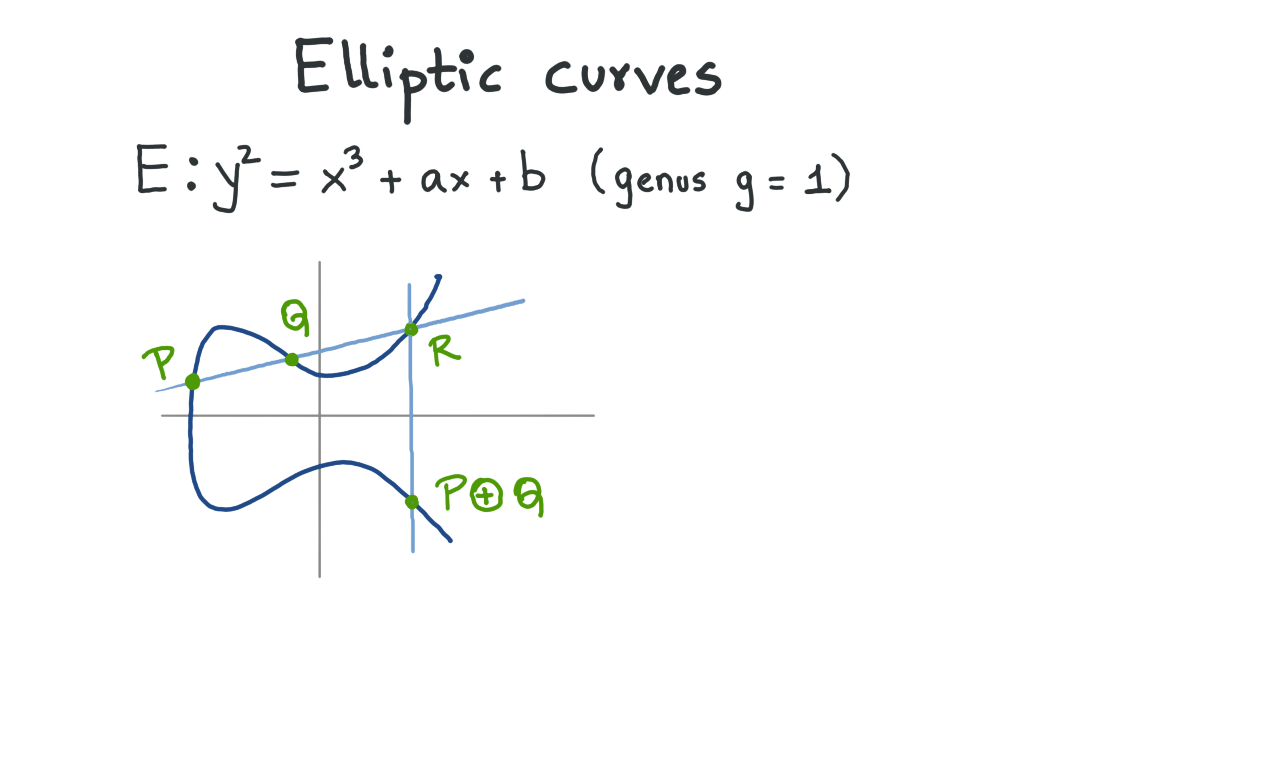 Elliptic curves
E : y² = x³ + ax + b (genus g = 1)
Q
P
R
P⊕Q